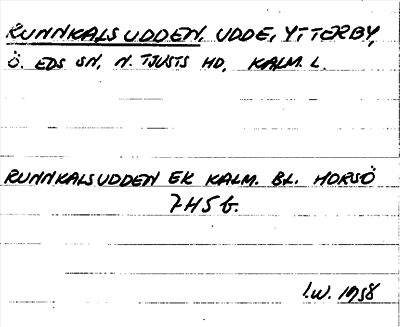 RUNNKALSUDDEN, UDDE, YTTERBY,
Ö. EDS SN, N. TJUSTS HD, KALM. L.
RUNNKALSUDDEN EK KALM. BL. HORSÖ
7H5G.
I.W. 1958